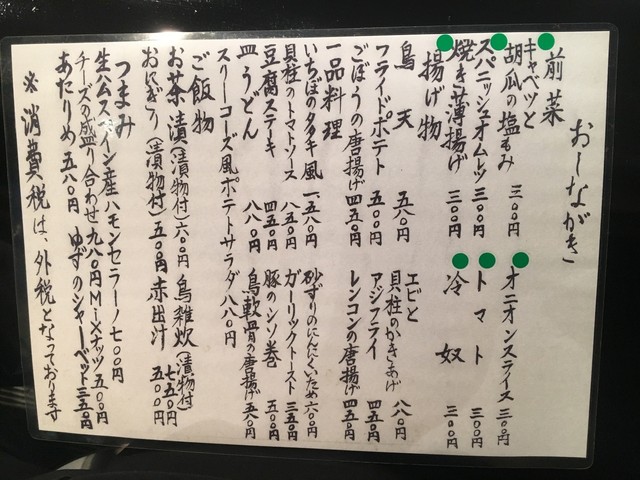 おしながき
前菜
キャベツと
胡瓜の塩もみ 三〇〇円
オニオンスライス 三〇〇円
スパニッシュオムレツ 三〇〇円
トマト 三〇〇円
焼き薄揚げ 三〇〇円
冷奴 三〇〇円
揚げ物
鳥天 五八〇円
エビと
貝柱のかきあげ 八八〇円
フライドポテト 五〇〇円
アジフライ 四五〇円
ごぼうの唐揚げ 四五〇円
レンコンの唐揚げ 四五〇円
一品料理
いちぼのタタキ風 一、五八〇円
砂ずりのにんにくいため 六〇〇円
貝柱のトマトソース 八五〇円
ガーリックトースト 三五〇円
豆腐ステーキ 四五〇円
豚のシソ巻 五〇〇円
皿うどん 八八〇円
鳥軟骨の唐揚げ 五八〇円
スリーコーズ風ポテトサラダ 八八〇円
ご飯物
お茶漬(漬物付) 六〇〇円
鳥雑炊(漬物付) 七五〇円
おにぎり(漬物付) 五〇〇円
赤出汁 五〇〇円
つまみ
生ハムスペイン産ハモンセラーノ 七〇〇円
チーズの盛り合わせ 九八〇円
Mixナッツ 五〇〇円
あたりめ 五八〇円
ゆずのシャーベット 三五〇円
※消費税は、外税となっております